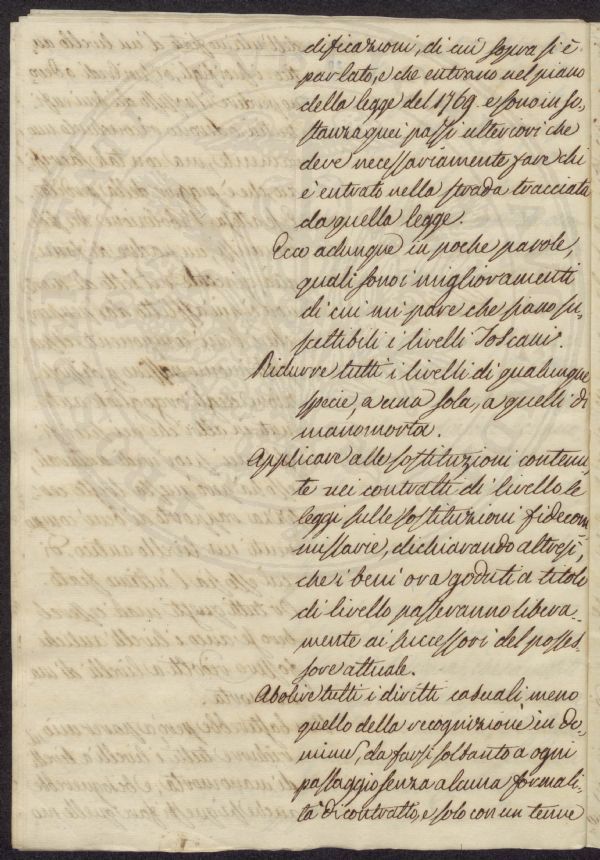 dificazioni, di cui sopra si è
parlato, e che entrano nel piano
della legge del 1769. e sono in so,
stanza quei passi ulteriori che
deve necessariamente fare chi
è entrato nella strada tracciata
da quella legge.
Ecco adunque in poche parole,
quali sono i miglioramenti
di cui mi pare che siano su,
scettibili i livelli Toscani.
Ridurre tutti i livelli di qualunque
specie, a una sola, a quelli di
manomorta.
Applicare alle sostituzioni contenu,
te nei contratti di livello le
leggi sulle sostituzioni fidecom
missarie, dichiarando altresì,
che i beni ora goduti a titolo
di livello passeranno libera,
mente ai successori del posses
sore attuale.
Abolire tutti i diritti casuali meno
quello della recognizione in do,
minum, da farsi soltanto a ogni
passaggio senza alcuna formali,
tà di contratto, e solo con un tenue